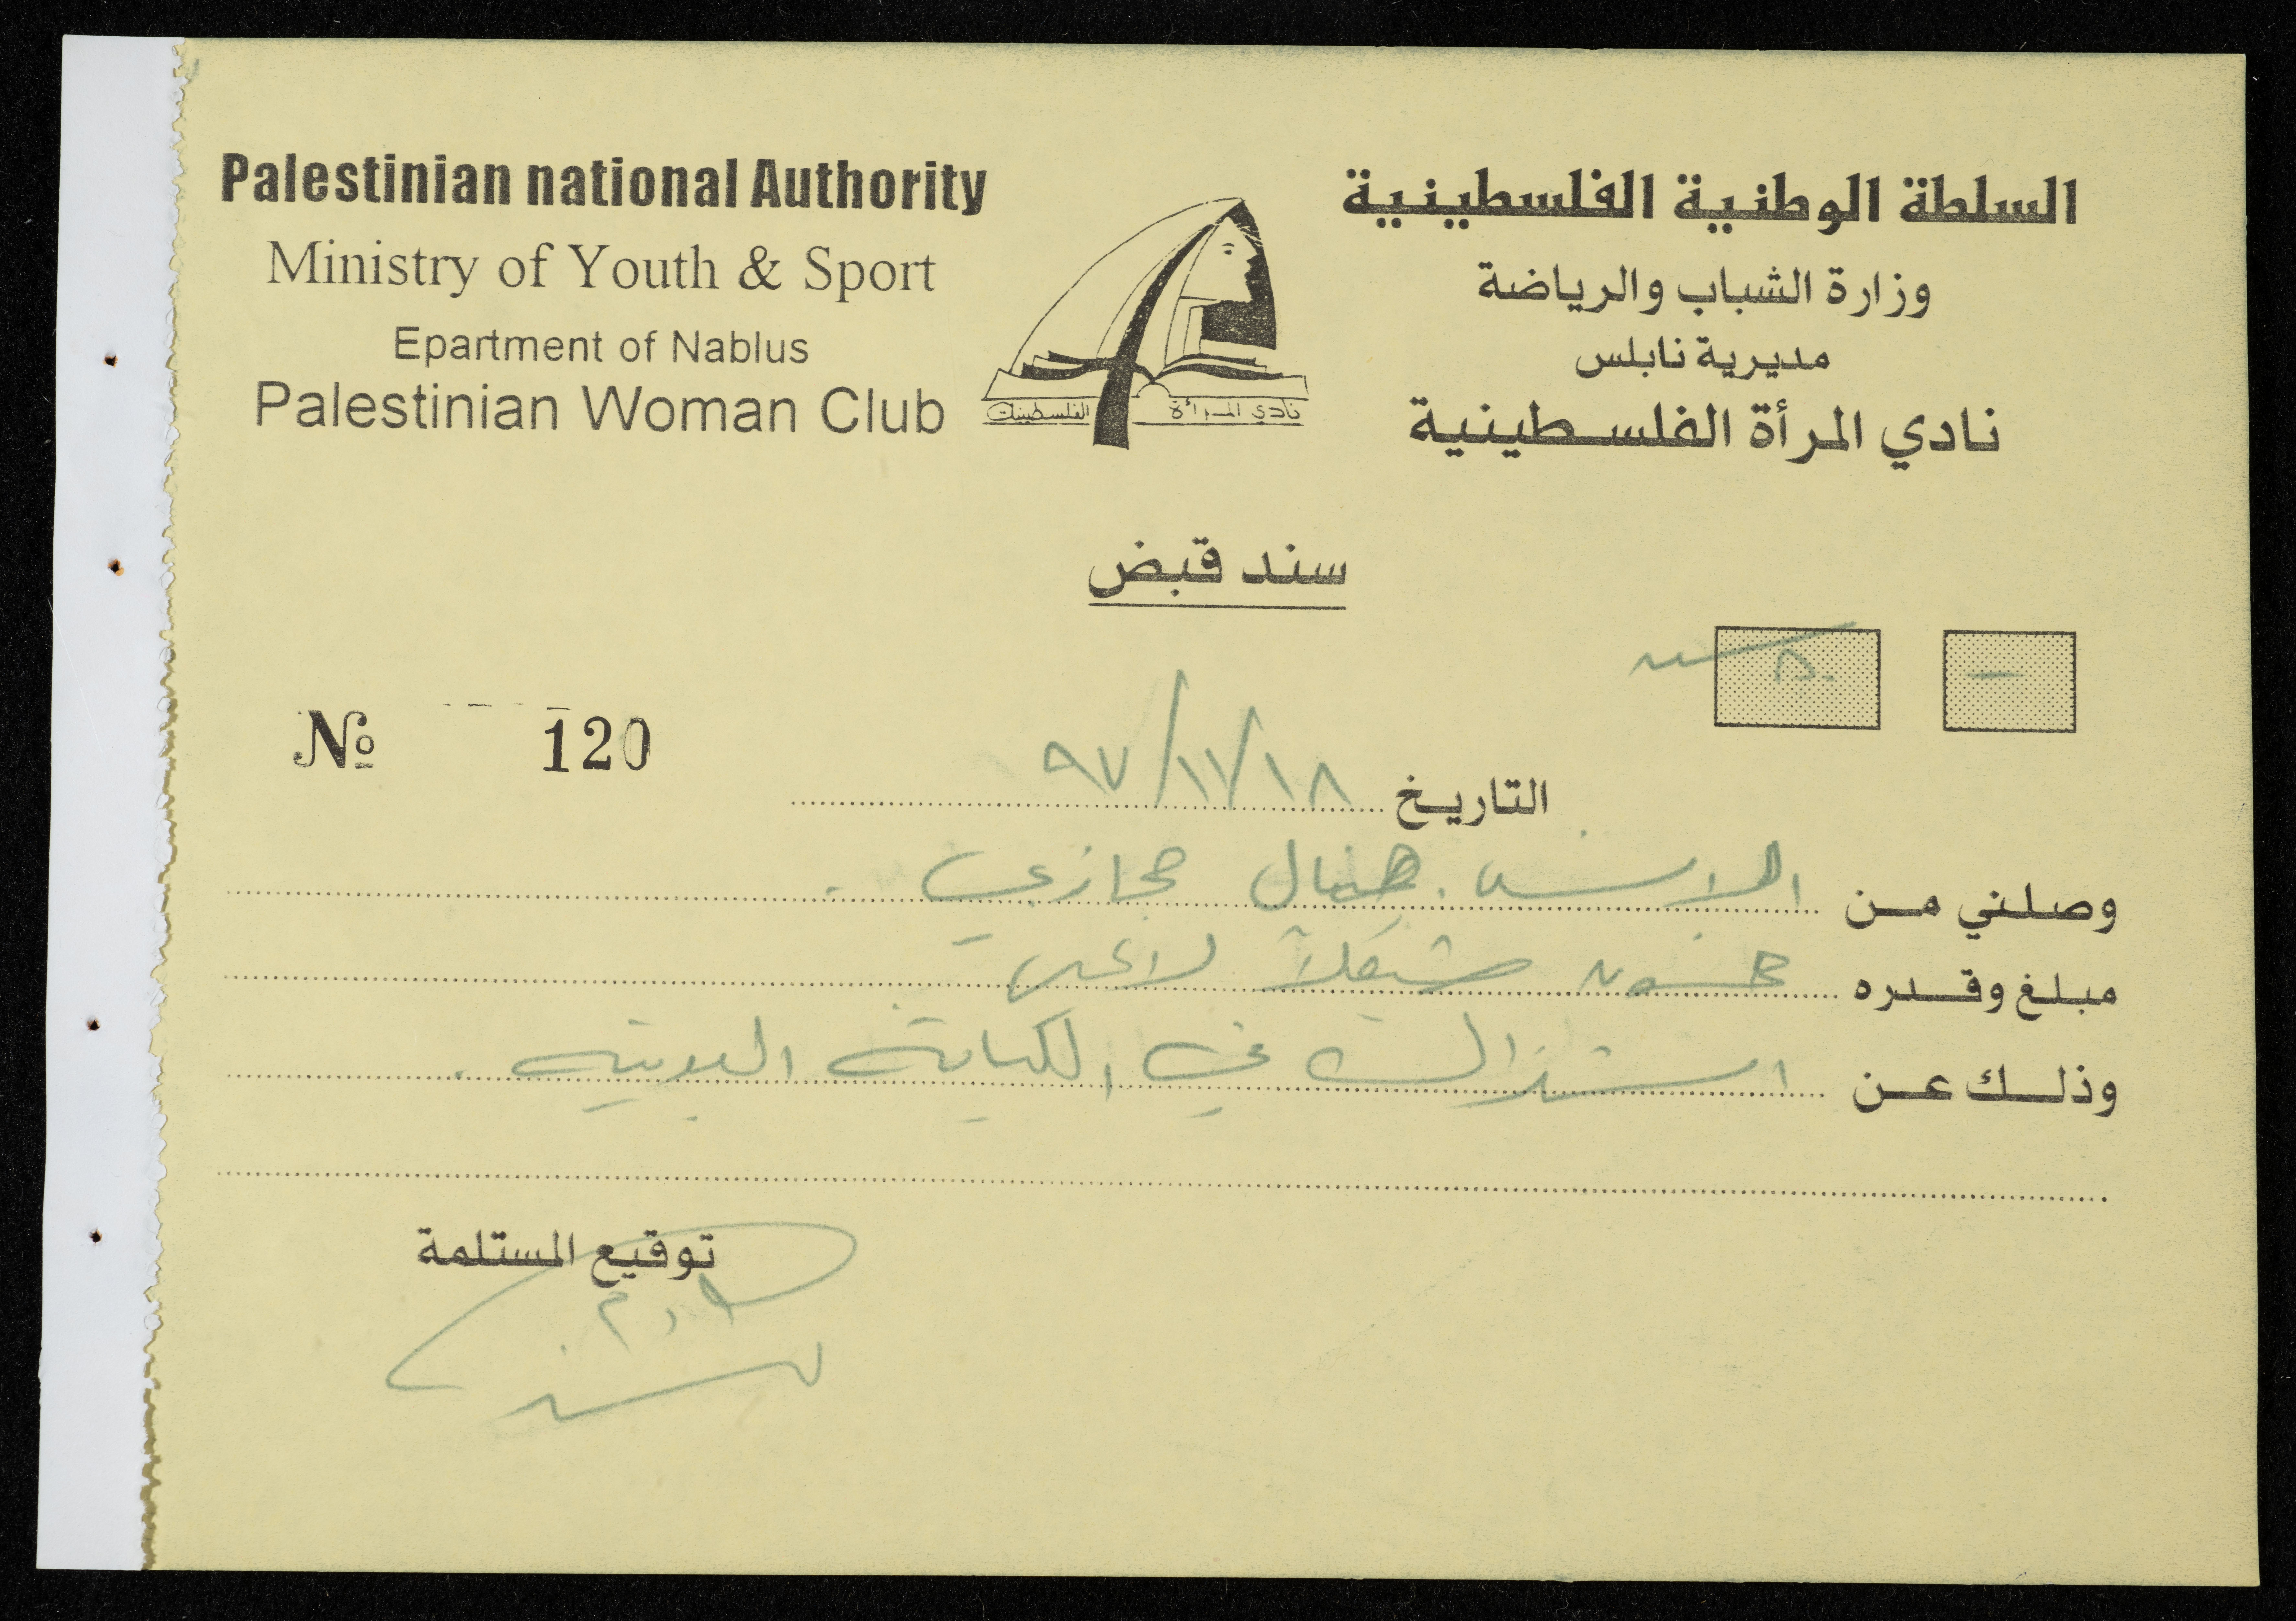 Palestinian national Authority
Ministry of Youth & Sport
Epartment of Nablus
Palestinian Woman Club
السلطة الوطنية الفلسطينية
وزارة الشباب والرياضة
مديرية نابلس
نادي المرأة الفلسطينية
نادي المرأة الفلسطينية
سند قبض
—
٥٠
№ 120
التاريخ ٩٧/١١/١٨
وصلني من الانسه. حجازي.
مبلغ وقدره خمسون شيقلاً لا غير
وذلك عن اشتراك في اللياقة البدنية.
توقيع المستلمة